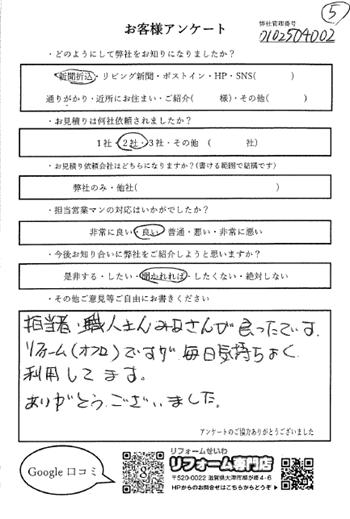 ⑤
お客様アンケート
弊社管理番号
0102504002
・どのようにして弊社をお知りになりましたか？
新聞折込・リビング新聞・ポストイン・HP・SNS(　　　)
通りがかり・近所にお住まい・ご紹介(　　　様)・その他(　　　)
・お見積りは何社依頼されましたか？
1社・2社・3社・その他 (　　　社)
・お見積り依頼会社はどちらになりますか？(書ける範囲で結構です)
弊社のみ・他社(　　　)
・担当営業マンの対応はいかがでしたか？
非常に良い・良い・普通・悪い・非常に悪い
・今後お知り合いに弊社をご紹介しようと思いますか？
是非する・したい・聞かれれば・したくない・絶対しない
・その他ご意見等ご自由にお書きください
担当者・職人さんみなさんが良ったです。
リフォーム(オフロ)ですが毎日気持ちよく
利用してます。
ありがとうございました。
アンケートのご協力ありがとうございました
Google 口コミ
リフォームせいわ
リフォーム専門店
〒520-0022 滋賀県大津市柳が崎4-6
HPからのお問合せはこちらからどうぞ